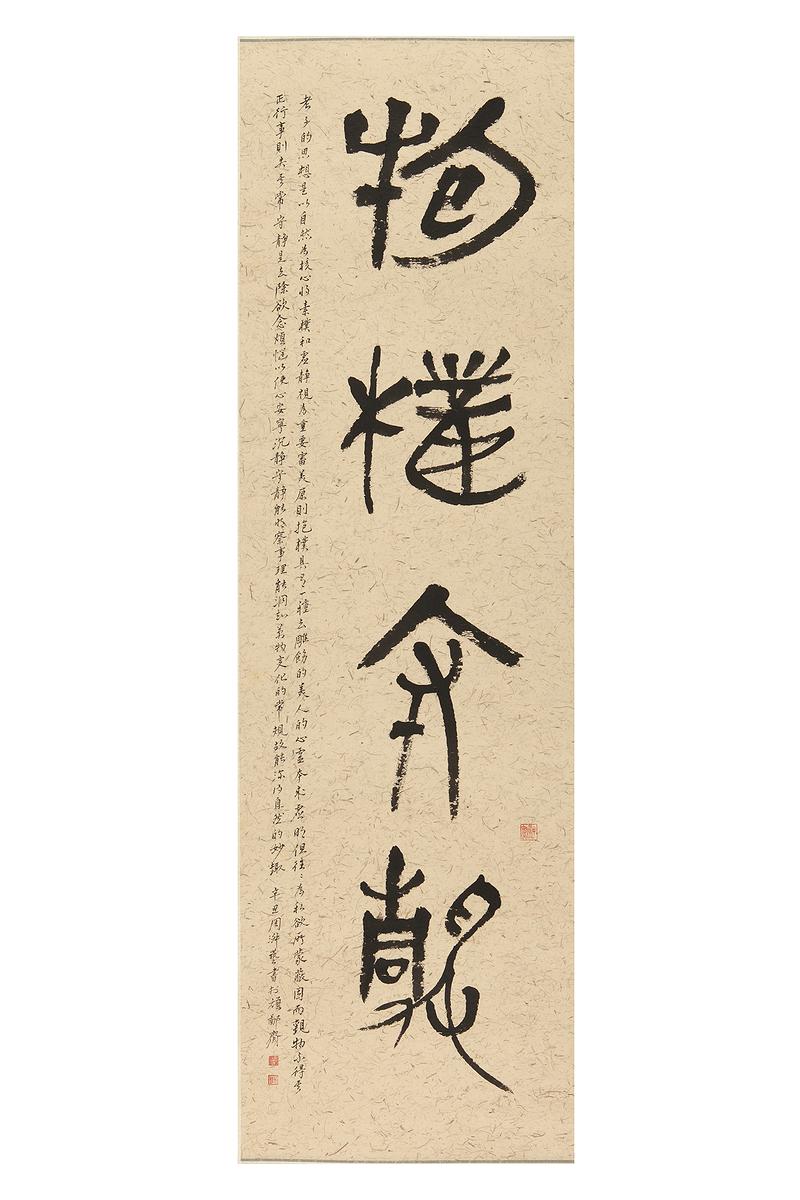 抱樸守靜
老子的思想是以自然為核心將素樸和虛靜視為重要審美原則抱樸具有一種去雕飾的美人的心靈本來虛明但往〻為私欲所蒙蔽因而觀物不得其
正行事則失其常守靜是去除欲念煩惱以使心安寧沉靜守靜能明察事理能洞知萬物變化的常規故能深得自然的妙趣 辛丑周藝書於齋